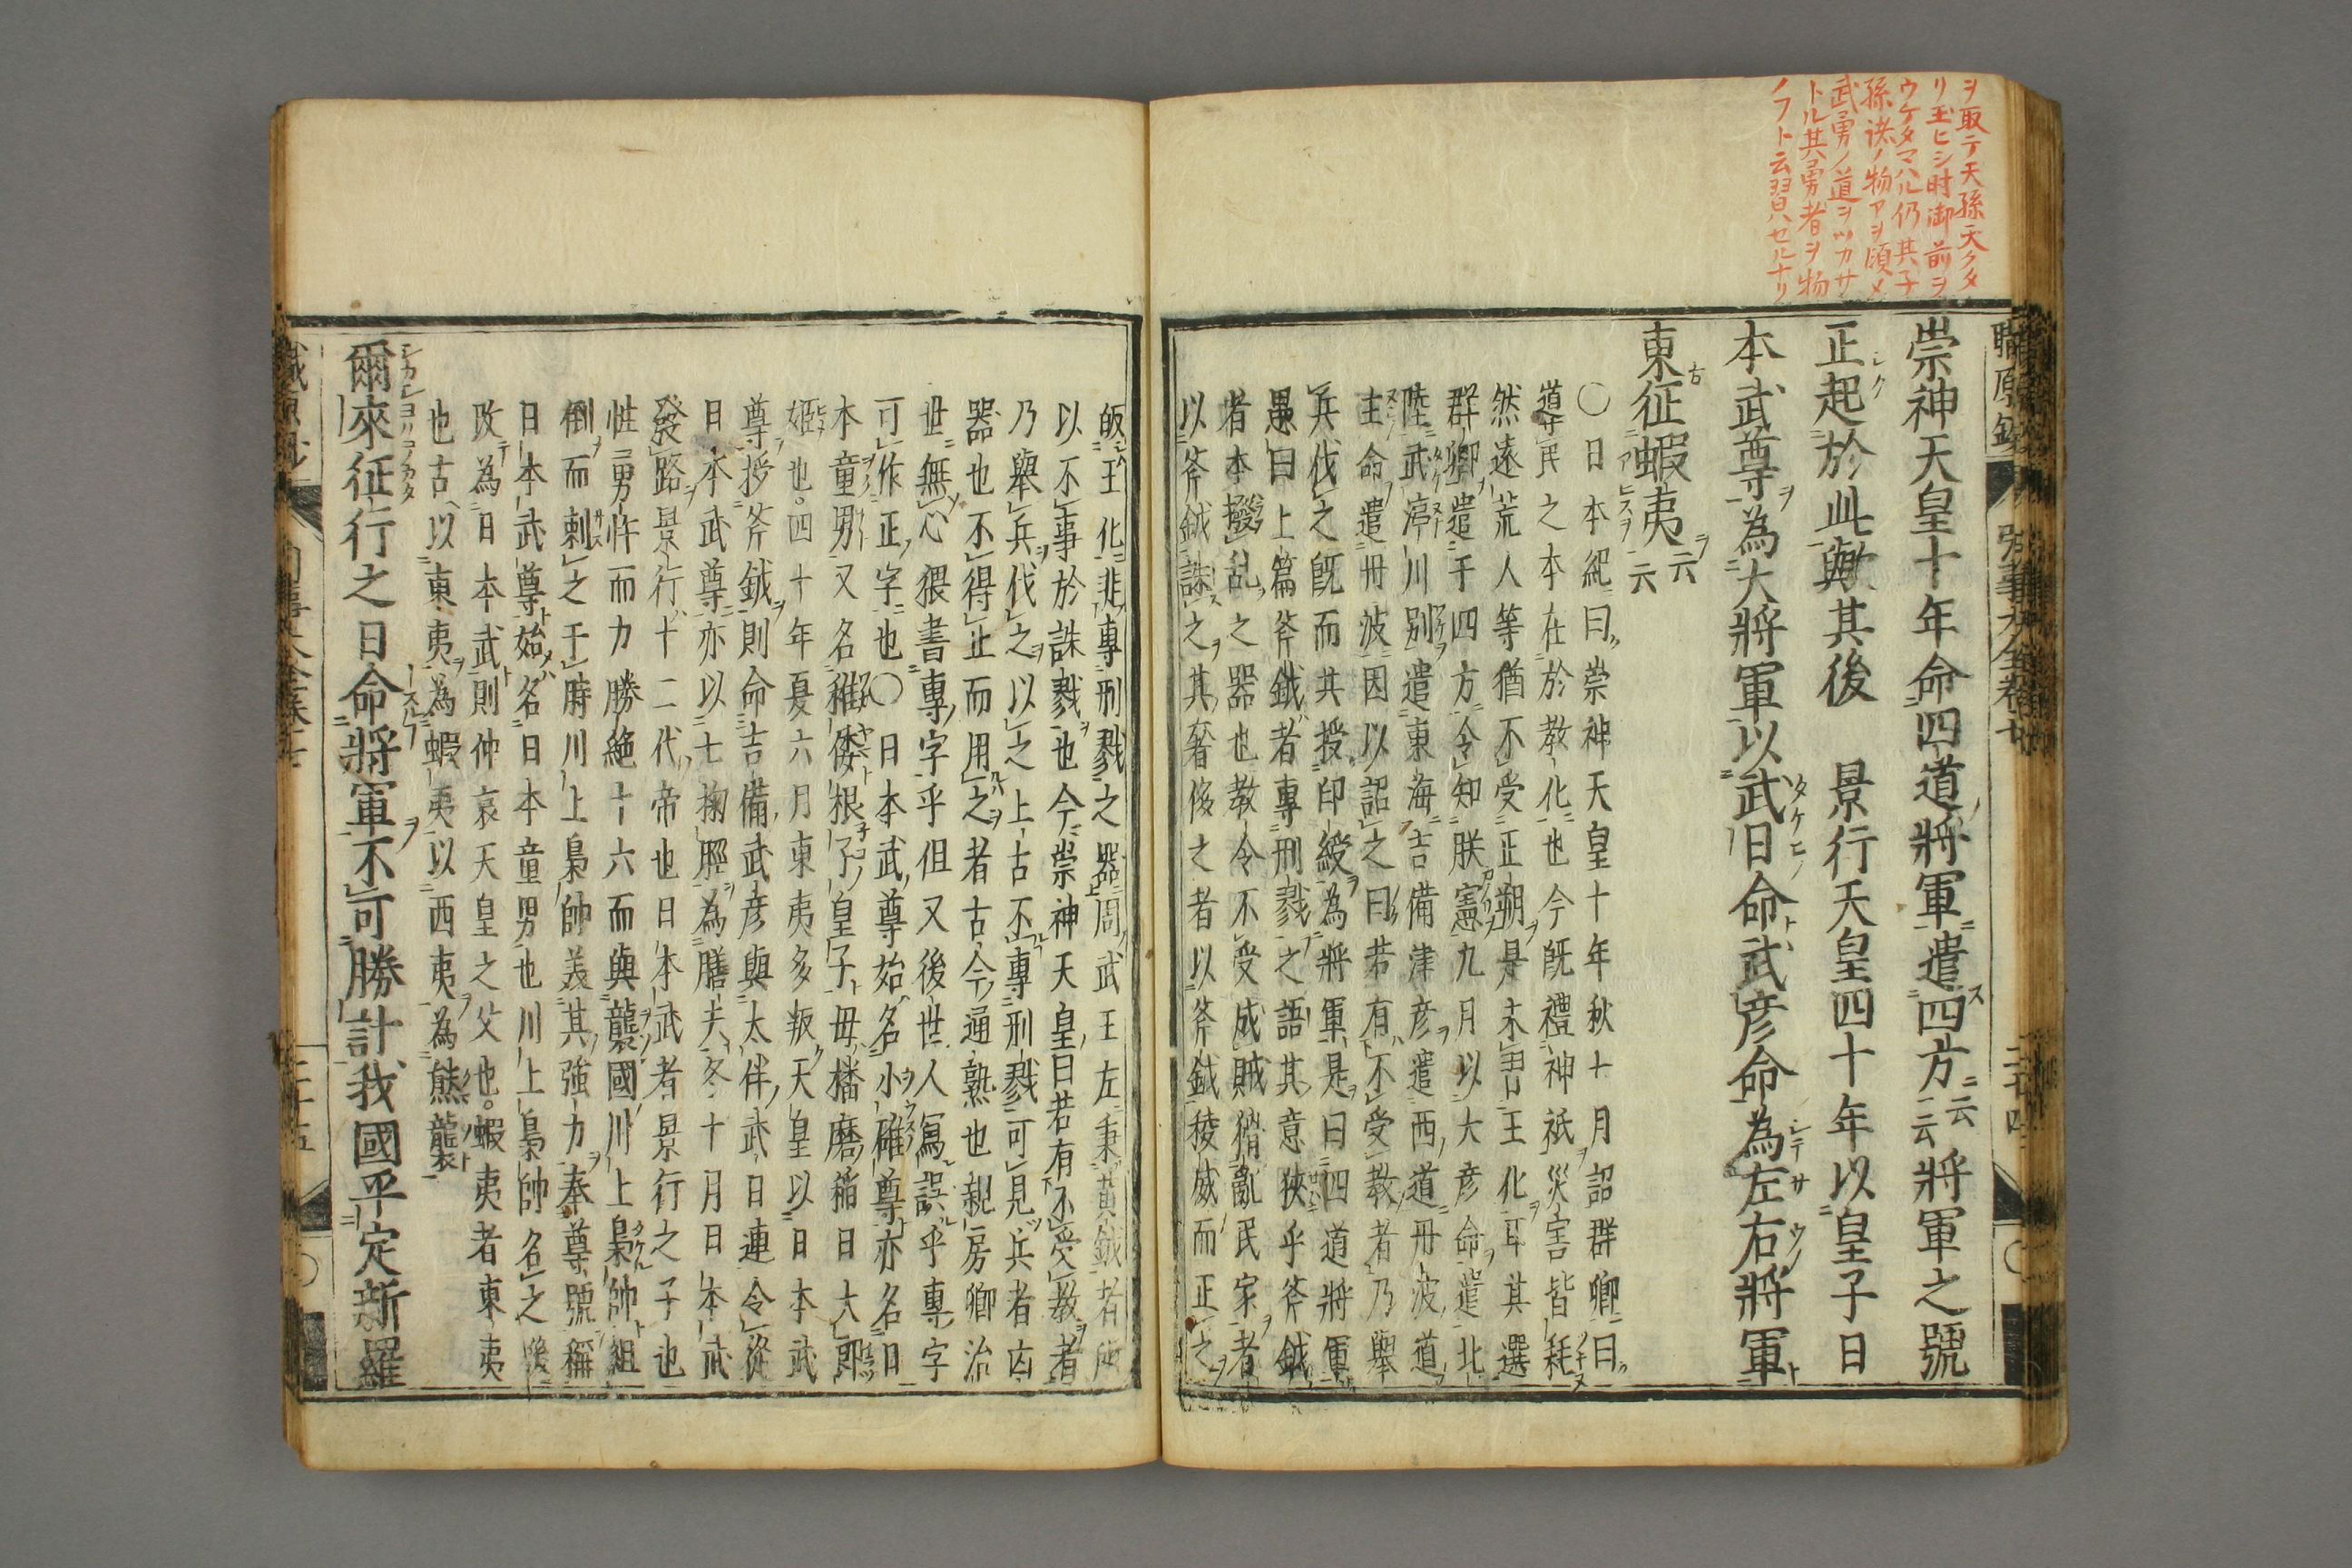 ヲ取テ天孫天クタ
リ玉ヒシ時御前ヲ
ウケタマハル仍其子
孫諸ノ物アヲ順メ
武勇ノ道ヲツカサ
トル其勇者ヲ物
ノフト云習ハセルナリ
崇神天皇十年命四道將軍遣四方云云將軍之號
正起於此歟其後 景行天皇四十年以皇子日
本武尊為大將軍以武日命武彦命為左右將軍
東征蝦夷云云
〇日本紀曰崇神天皇十年秋十月詔群卿曰
導民之本在於教化也今既禮神祇災害皆耗
然遠荒人等猶不受正朔是未習王化耳其選
群卿遣于四方令知朕憲九月以大彦命遣北
陸武渟川別遣東海吉備津彦遣西道丹波道
主命遣丹波因以詔之曰若有不受教者乃舉
兵伐之既而共授印綬為將軍是曰四道將軍
愚曰上篇斧鉞者專刑戮之語其意狹乎斧鉞
者本撥乱之器也教令不受成賊猾亂民家者
以斧鉞誅之其奢侈之者以斧鉞稜威而正之
皈王化非專刑戮之器周武王左秉黄鉞者所
以不事於誅戮也今崇神天皇曰若有不受教者
乃舉兵伐之以之上古不專刑戮可見兵者凶
器也不得正而用之者古今通熟也親房卿治
世無心猥書專字乎但又後世人寫誤乎專字
可作正字也〇日本武尊始名小碓尊亦名日
本童男又名稚倭根子皇子母播磨稲日大郎
姫也四十年夏六月東夷多叛天皇以日本武
尊授斧鉞則命吉備武彦與大伴武日連令從
日本武尊亦以七掬脛為膳夫冬十月日本武
發路景行十二代帝也日本武者景行之子也
性勇忤而力勝絶十六而與襲國川上梟帥組
倒而刺之于時川上梟帥美其強力奉尊號稱
日本武尊始名日本童男也川上梟帥名之後
改為日本武則仲哀天皇之父也蝦夷者東夷
也古以東夷為蝦夷以西夷為熊襲
爾來征行之日命將軍不可勝計我國平定新羅